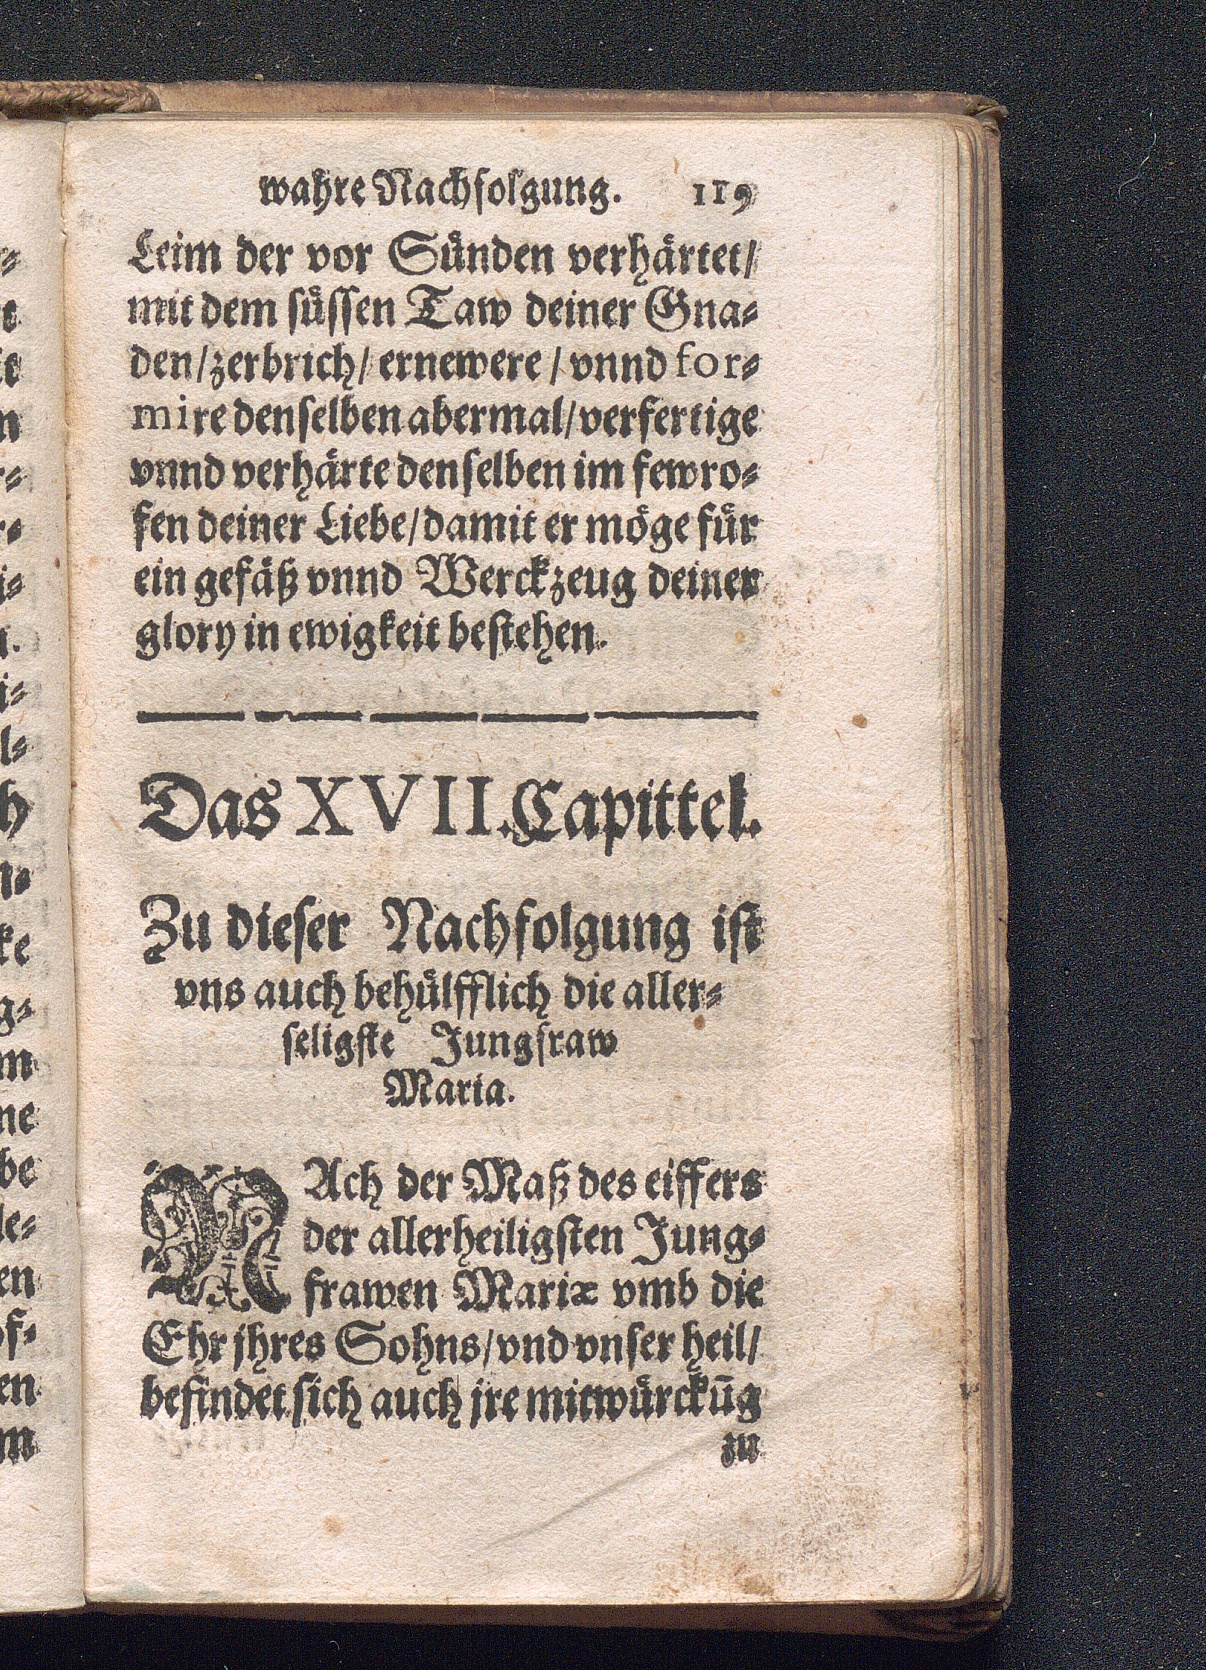 wahre Nachfolgung. 119
Leim der vor Sünden verhärtet/
mit dem süssen Taw deiner Gna-
den/zerbrich/ ernewere / vnnd for-
mire denselben abermal/verfertige
vnnd verhärte denselben im fewro-
fen deiner Liebe/damit er möge für
ein gefäß vnnd Werckzeug deiner
glory in ewigkeit bestehen.
Das XVII. Capittel.
Zu dieser Nachfolgung ist
vns auch behülfflich die aller-
seligste Jungfraw
Maria.
NAch der Maß des eiffers
der allerheiligsten Jung-
frawen Mariæ vmb die
Ehr jhres Sohns/vnd vnser heil/
befindet sich auch jre mitwürckūg
zu